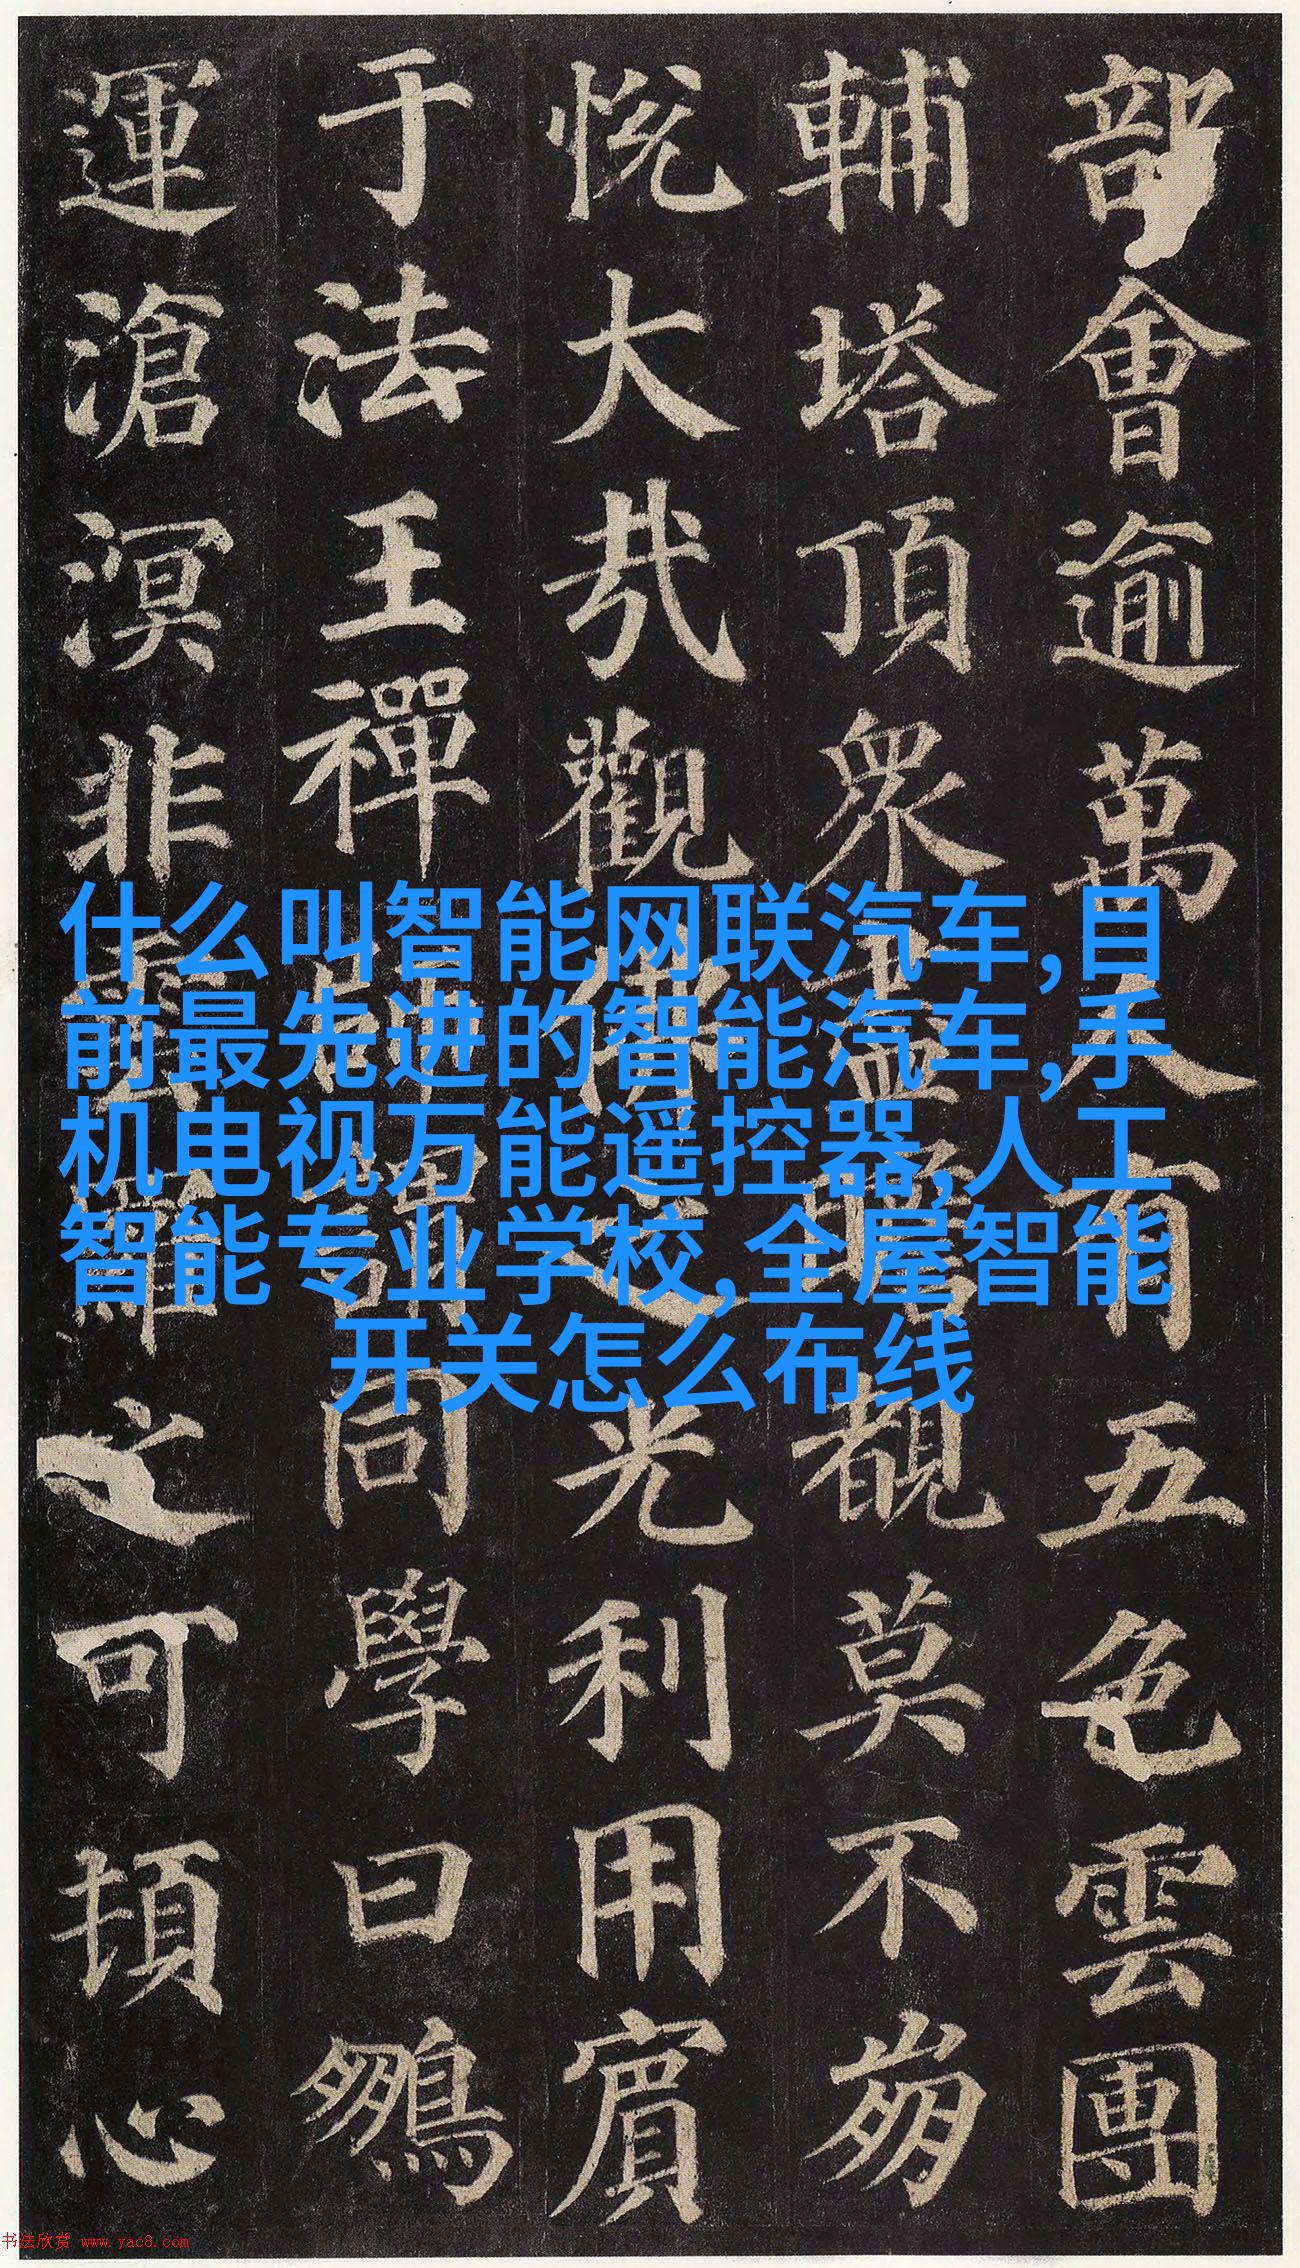 部會逾萬人有五色雲團
輔塔頂眾盡瞻覩莫不崩
悅大哉觀佛之光利用賓
于法王禪師謂同學曰鵬
運滄溟非雲羅之可頓心
什么叫智能网联汽车,目
前最先进的智能汽车,手
机电视万能遥控器,人工
智能专业学校,全屋智能
开关怎么布线
书法欣赏 www.yac8.com